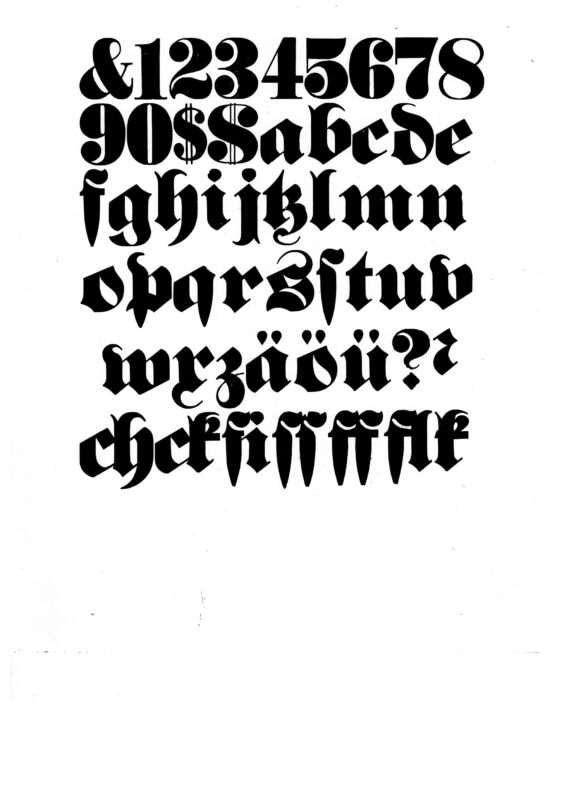 &12345678
90$$abcde
fghijtzlmn
opqrsſtuv
wxzäöü?ꝛ
chckfiſſffflk